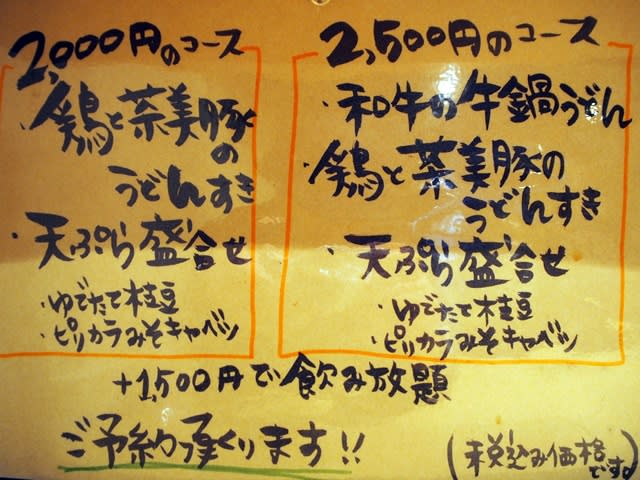 2,000円のコース
・鶏と茶美豚の
うどんすき
・天ぷら盛合せ
・ゆでたて枝豆
・ピリカラみそキャベツ
2,500円のコース
・和牛の牛鍋うどん
・鶏と茶美豚の
うどんすき
・天ぷら盛合せ
・ゆでたて枝豆
・ピリカラみそキャベツ
+1,500円で飲み放題
ご予約承ります!!
(税込み価格
です。)